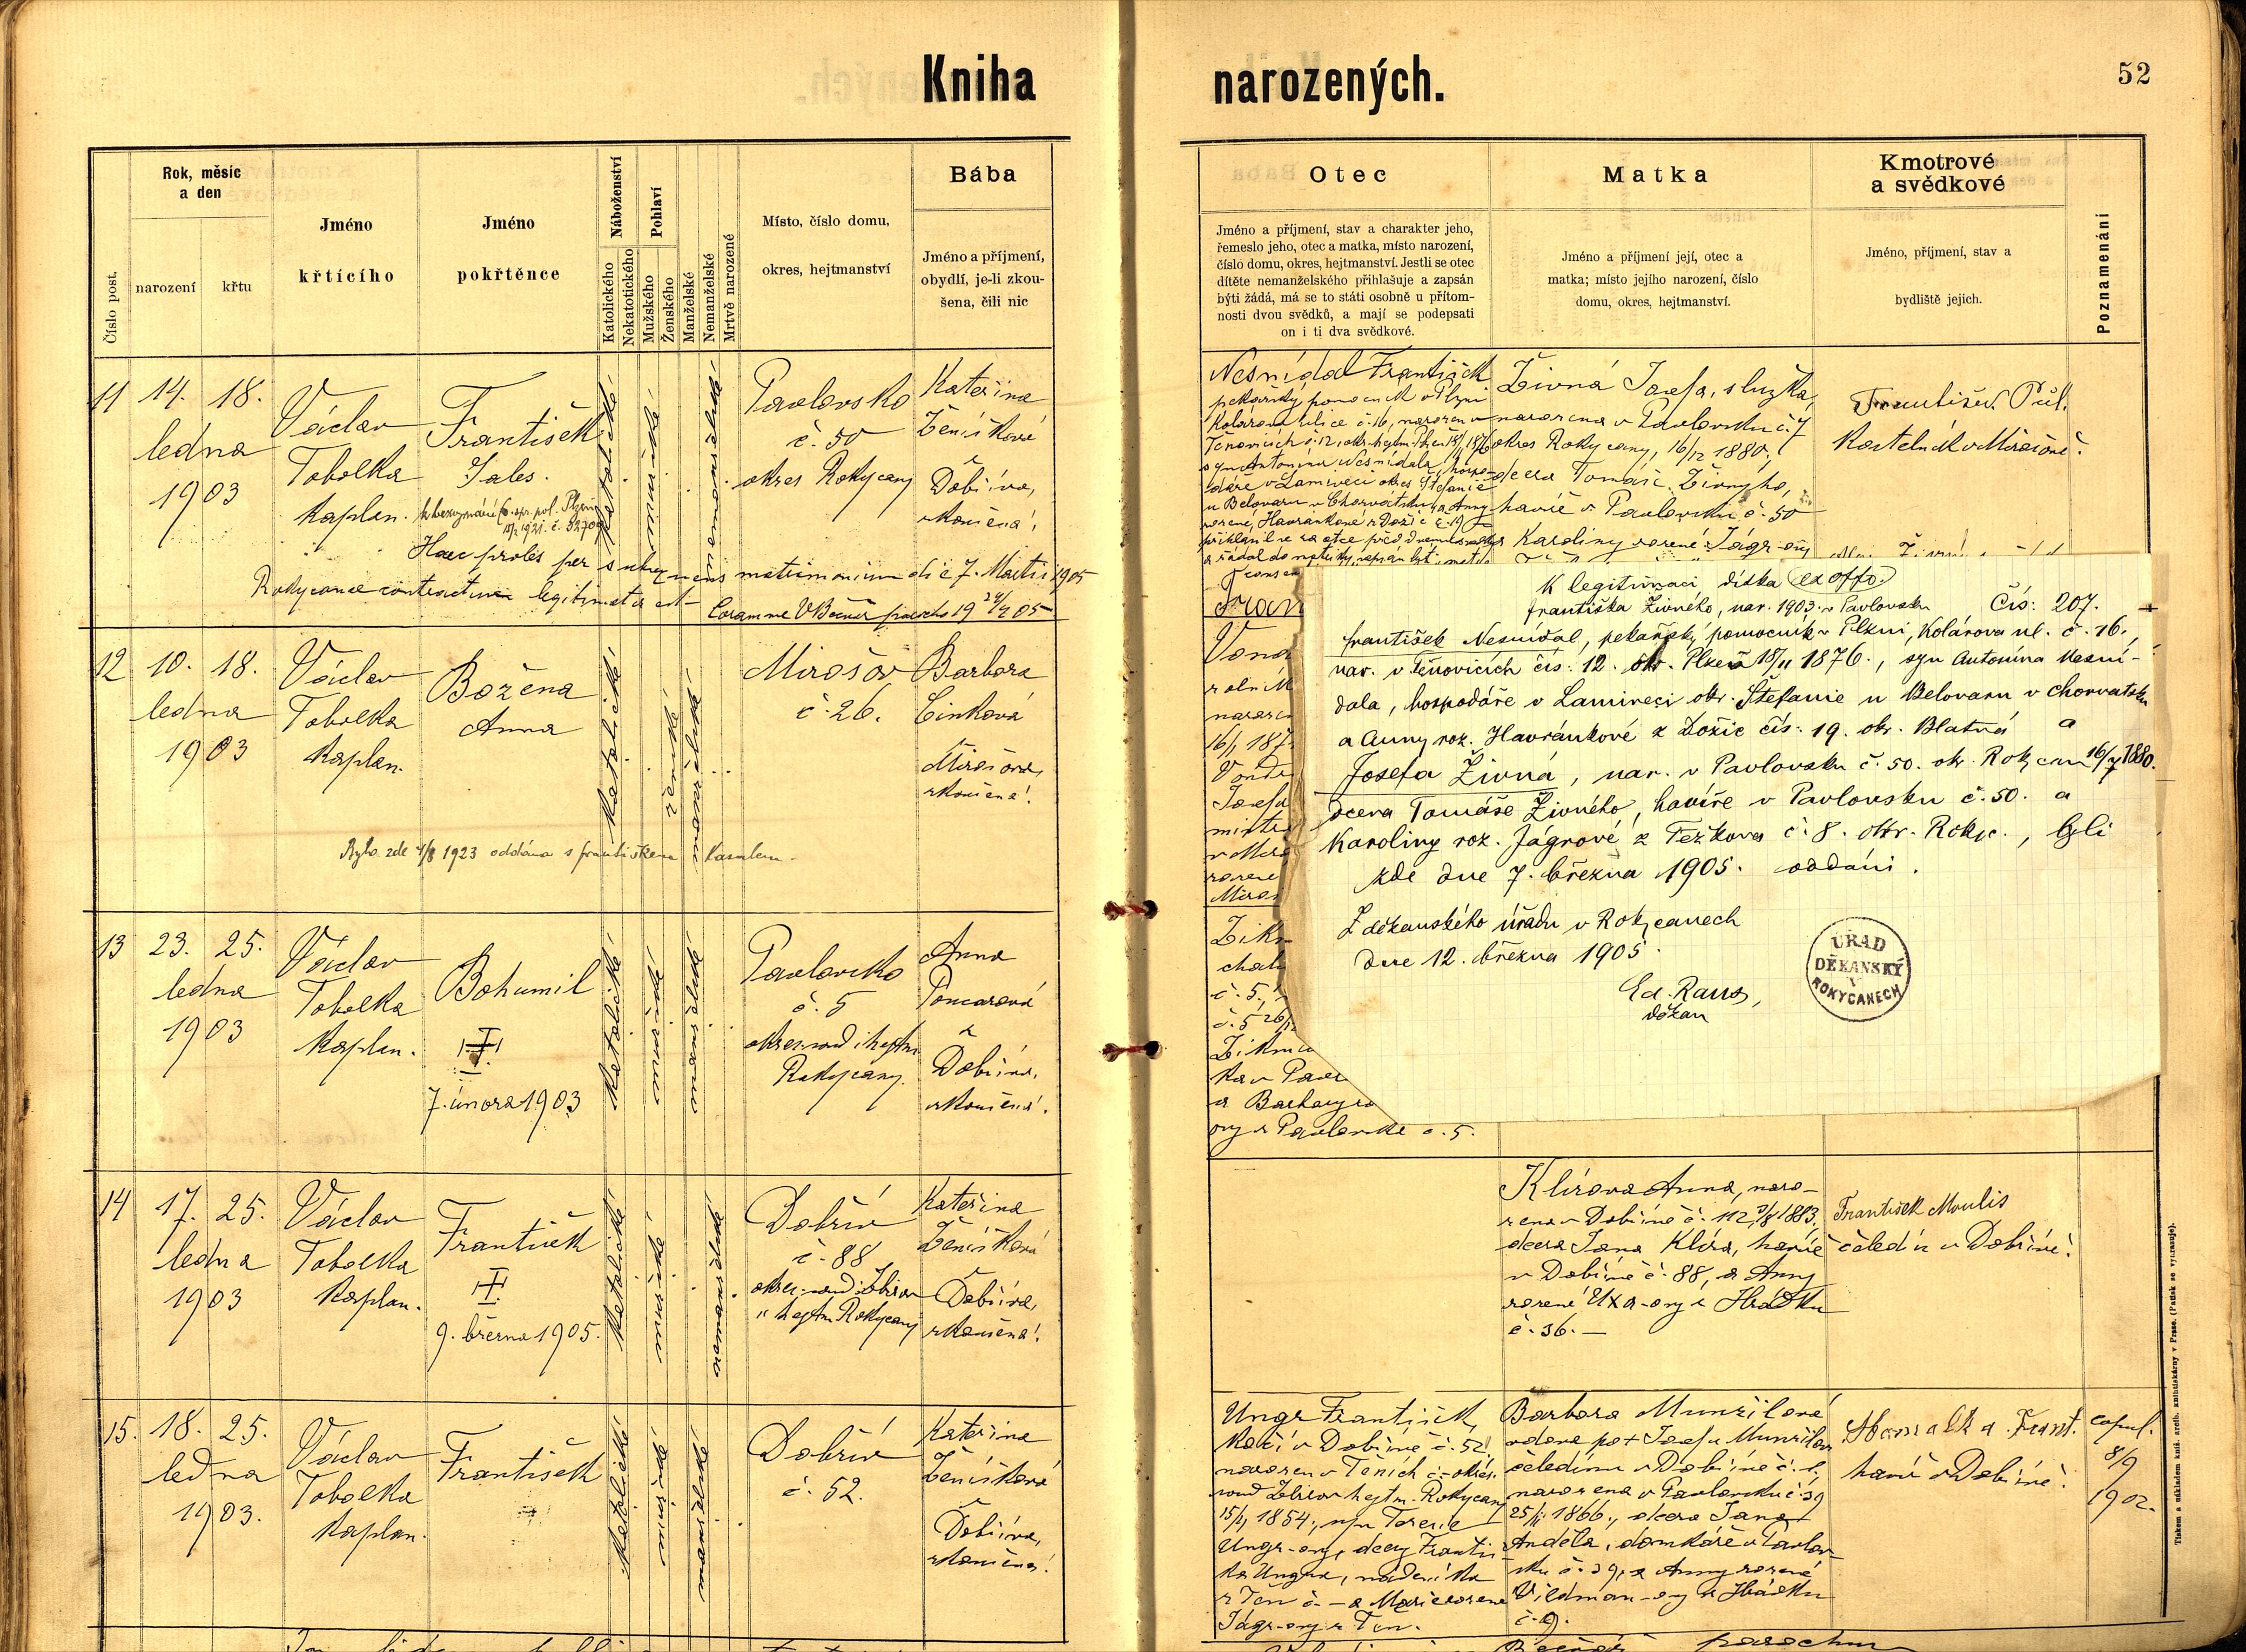 Kniha narozených.
52
Číslo post.
Rok, měsíc
a den
narození
křtu
Jméno
křtícího
Jméno
pokřtěnce
Náboženství
Katolického
Nekatotického
Pohlaví
Mužského
Ženského
Manželské
Nemanželské
Mrtvě narozené
Místo, číslo domu,
okres, hejtmanství
Bába
Jméno a příjmení,
obydlí, je-li zkou-
šena, čili nic
Otec
Jméno a příjmení, stav a charakter jeho,
řemeslo jeho, otec a matka, místo narození,
číslo domu, okres, hejtmanství. Jestli se otec
dítěte nemanželského přihlašuje a zapsán
býti žádá, má se to státi osobně u přítom-
nosti dvou svědků, a mají se podepsati
on i ti dva svědkové.
Matka
Jméno a příjmení její, otec a
matka; místo jejího narození, číslo
domu, okres, hejtmanství.
Kmotrové
a svědkové
Jméno, příjmení, stav a
bydliště jejich.
Poznamenání
11
14.
18.
ledna
1903
Václav
Tobolka
kaplan.
František
Sales.
katolické
mužské
nemanželské
Pavlovsko
č. 50
okres Rokycany
Kateřina
Ženíšková
z Dobříva,
zkoušená.
Haec proles per subsequens matrimonium die 7. Martii 1905
Rokycanae contractum legitimata est
Nesnídal František
pekařský pomocník v Plzni
Kolárova ulice č. 16, narozen v
syn Antonína Nesnídala, hospo-
dáře v Lamineci okres Štefanie
u Belovaru v Chorvátsku, a Anny
rozené Havránkové z Dožic č. 19
Živná Josefa, služka,
narozena v Pavlovsku č. 7
okres Rokycany, 16/12 1880,
dcera Tomáše Živnýho,
havíře v Pavlovsku č. 50
a Karoliny rozené Jágr-ový
František Půl.
kostelník v Mirošově.
12
10.
18.
ledna
1903
Václav
Tobolka
kaplan.
Božena
Anna
katolické
ženské
manželské
Mirošov
č. 26.
Barbora
Cinková
z Mirošova,
zkoušená.
Byla zde 4/8 1923 oddána s Františkem Kasalem.
13
23.
25.
ledna
1903
Václav
Tobolka
kaplan.
Bohumil
7. února 1903
katolické
mužské
manželské
Pavlovsko
č. 5
okres. soud i hejtm
Rokycany.
Anna
Poncarová
z Dobříva,
zkoušená.
a Barbory ro
ový z Pavlovska č. 5.
K legitimaci dítka ex offo.
Františka Živného, nar. 1903 v Pavlovsku
Čís: 207.
František Nesnídal, pekařský pomocník v Plzni, Kolárova ul. č. 16.,
nar. v Těnovicích čís: 12. okr. Plzeň 18/11 1876., syn Antonína Nesní-
dala, hospodáře v Lamineci okr. Štefanie u Belovaru v Chorvatsku
a Anny roz. Havránkové z Dožic čís: 19. okr. Blatná a
Josefa Živná, nar. v Pavlovsku č. 50. okr. Rokycan 16/7 1880.
dcera Tomáše Živného, havíře v Pavlovsku č. 50. a
Karoliny roz. Jágrové z Težkova č. 8. okr. Rokyc., byli
zde dne 7. března 1905. oddáni.
Z děkanského úřadu v Rokycanech
dne 12. března 1905.
Ed. Raus,
děkan
ÚŘAD
DĚKANSKÝ
V
ROKYCANECH
14
17.
25.
ledna
1903
Václav
Tobolka
kaplan.
František
9. března 1905.
katolické
mužské
nemanželské
Dobřív
č. 88
okres. soud: Zbirov
" hejtm. Rokycany
Kateřina
Ženíšková
z Dobříva,
zkoušená.
Klírova Anna, naro-
zena v Dobřívě č. 112, 7/8 1883,
dcera Jana Klíra, havíře
v Dobřívě č. 88, a Anny
rozené Uxa-ový z Hrádku
č. 36. —
František Moulis
čeledín v Dobřívě.
15.
18.
25.
ledna
1903.
Václav
Tobolka
kaplan.
František
katolické
mužské
manželské
Dobřív
č. 52.
Kateřina
Ženíšková
z Dobříva,
zkoušená.
Ungr František,
kočí v Dobřívě č. 52,
narozen v Těních č – okres.
soud Zbirov hejtm. Rokycany
15/1 1854, syn Terezie
Ungr-ový, dcery Františ-
ka Ungra, nádeníka
z Těň č – a Marie rozené
Jágr-ový z Těn.
Barbora Munzilová
vdova po + Josefu Munzilov
čeledínu v Dobřívě č. 1.
narozena v Pavlovsku č. 39
25/11 1866, dcera Jana
Anděla, domkáře v Pavlov-
sku č. 39, a Anny rozené
Vildman-ový z Hrádku
č. 9.
Frant.
havíř v Dobřívě.
copul.
8/9
1902.
Tiskem a nákladem kníž. arcib. knihtiskárny v Praze. (Patisk se vyhrazuje).